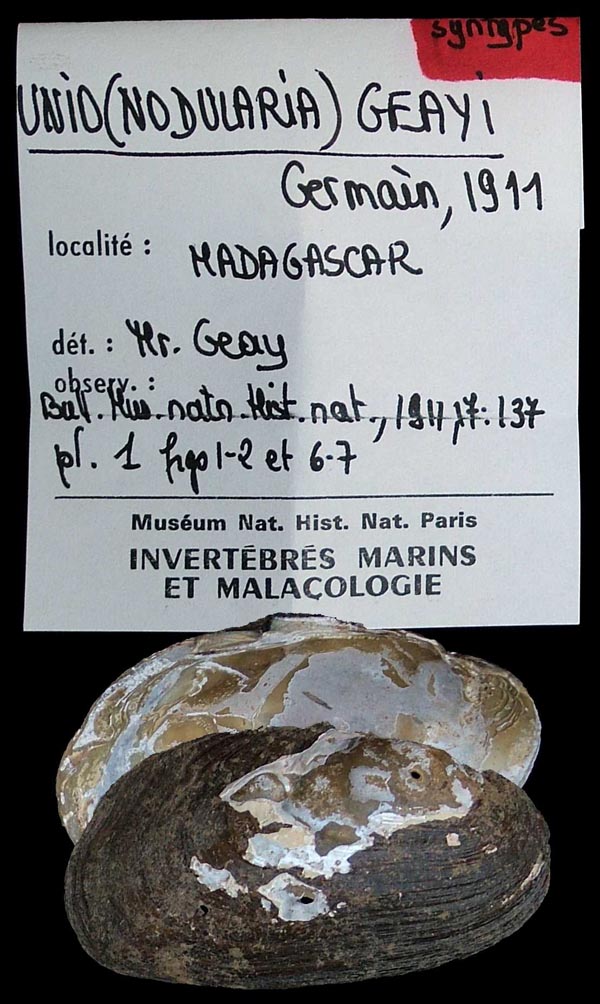 syntypes
UNIO (NODULARIA) GEAYI
Germain, 1911
localité : MADAGASCAR
dét. : Mr. Geay
observ. :
Bul. Mus. natn. Hist. nat., 1911, 17: 137
pl. 1 figs 1-2 et 6-7
Muséum Nat. Hist. Nat. Paris
INVERTÉBRÉS MARINS
ET MALACOLOGIE